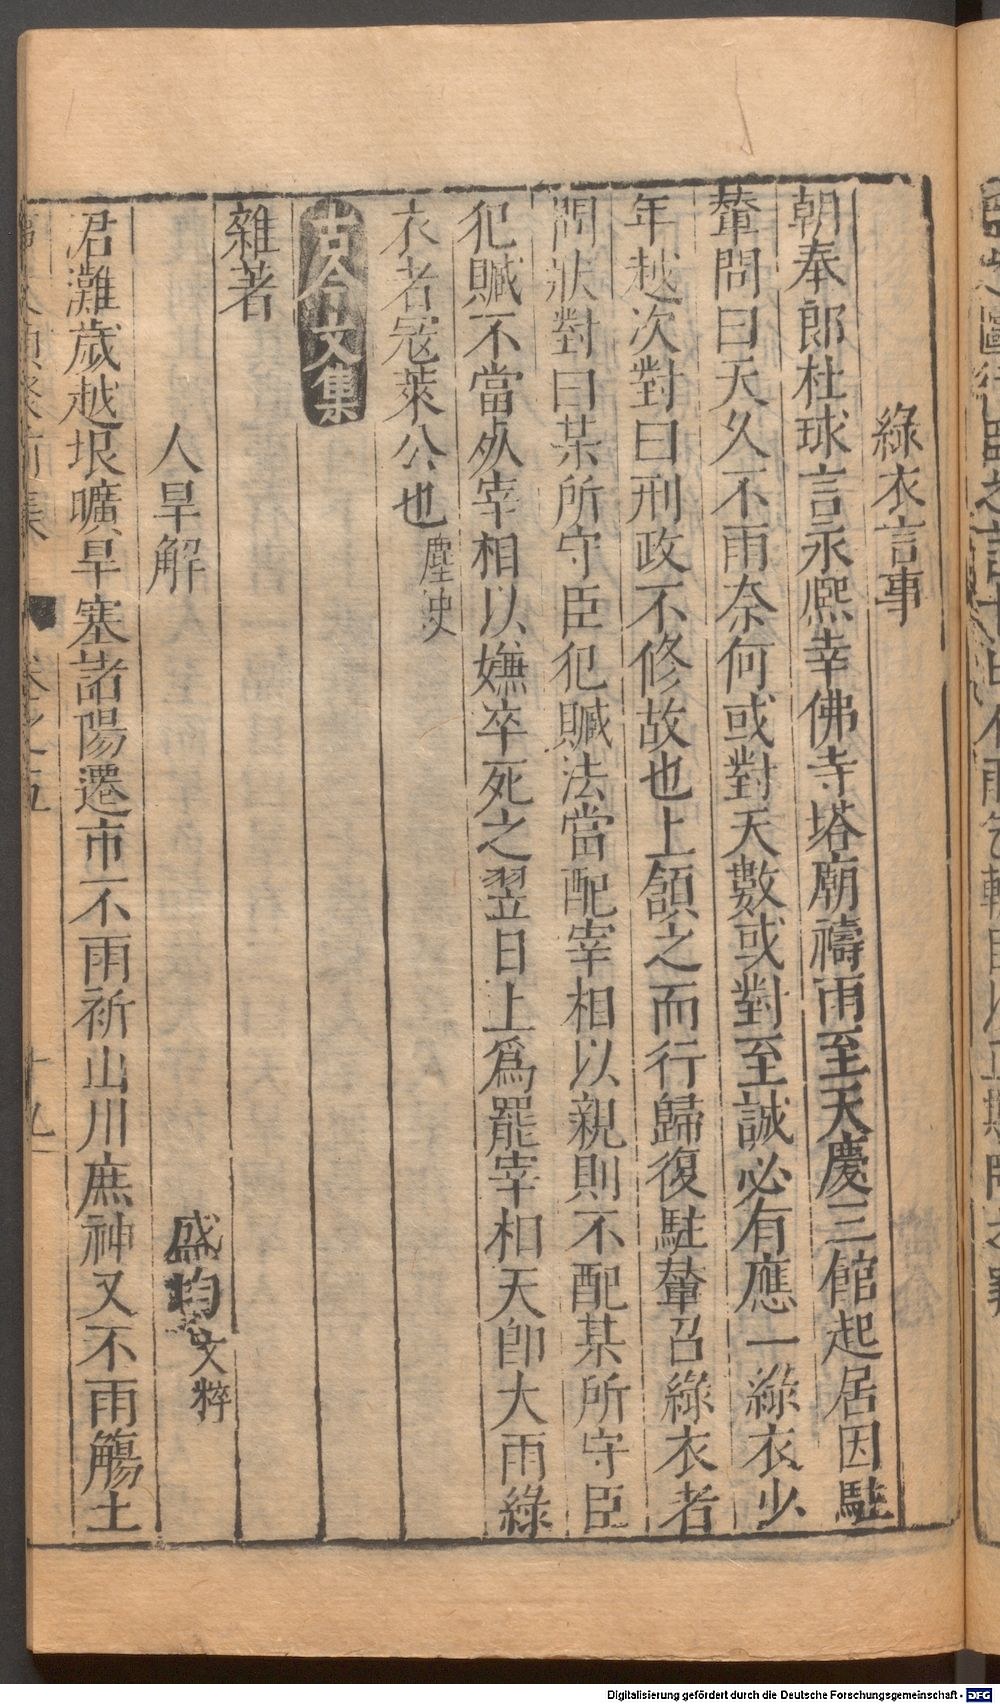 綠衣言事
朝奉郎杜球言永熈幸佛寺塔廟禱雨至天慶三館起居因駐
輦問曰天久不雨奈何或對天數或對至誠必有應一綠衣少
年越次對曰刑政不修故也上頷之而行歸復駐輦召綠衣者
問狀對曰某所守臣犯贓法當配宰相以親則不配某所守臣
犯贓不當死宰相以嫌卒死之翌日上爲罷宰相天即大雨綠
衣者冦萊公也 塵史
古今文集
雜著
人旱解 盛均 文粹
君灘歲越垠曠旱塞諸陽遷市不雨祈山川庶神又不雨觴土
卷之五 十九
Digitalisierung gefördert durch die Deutsche Forschungsgemeinschaft - DFG